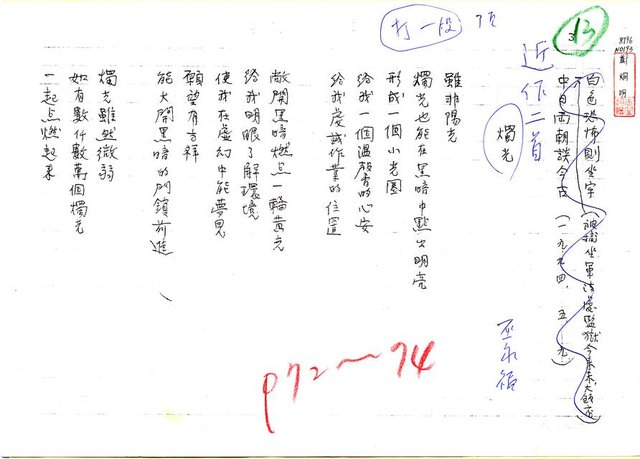 打一段 7頁
13
3
8796
ND193
白色恐怖則坐牢(被捕坐軍法處監獄今來來大飯店)
中日兩朝談今古(一九九四、五、九)
近作二首
巫永福
燭光
雖非陽光
燭光也能在黑暗中點出明亮
形成一個小光圈
給我一個溫馨的心安
給我虔誠作業的位置
敞開黑暗燃点一輪黃光
給我明眼了解環境
使我在虛幻中能夢見
願望有吉祥
能大開黑暗的門鎖前進
燭光雖然微弱
如有數仟數萬個燭光
一起点燃起來
p72～74